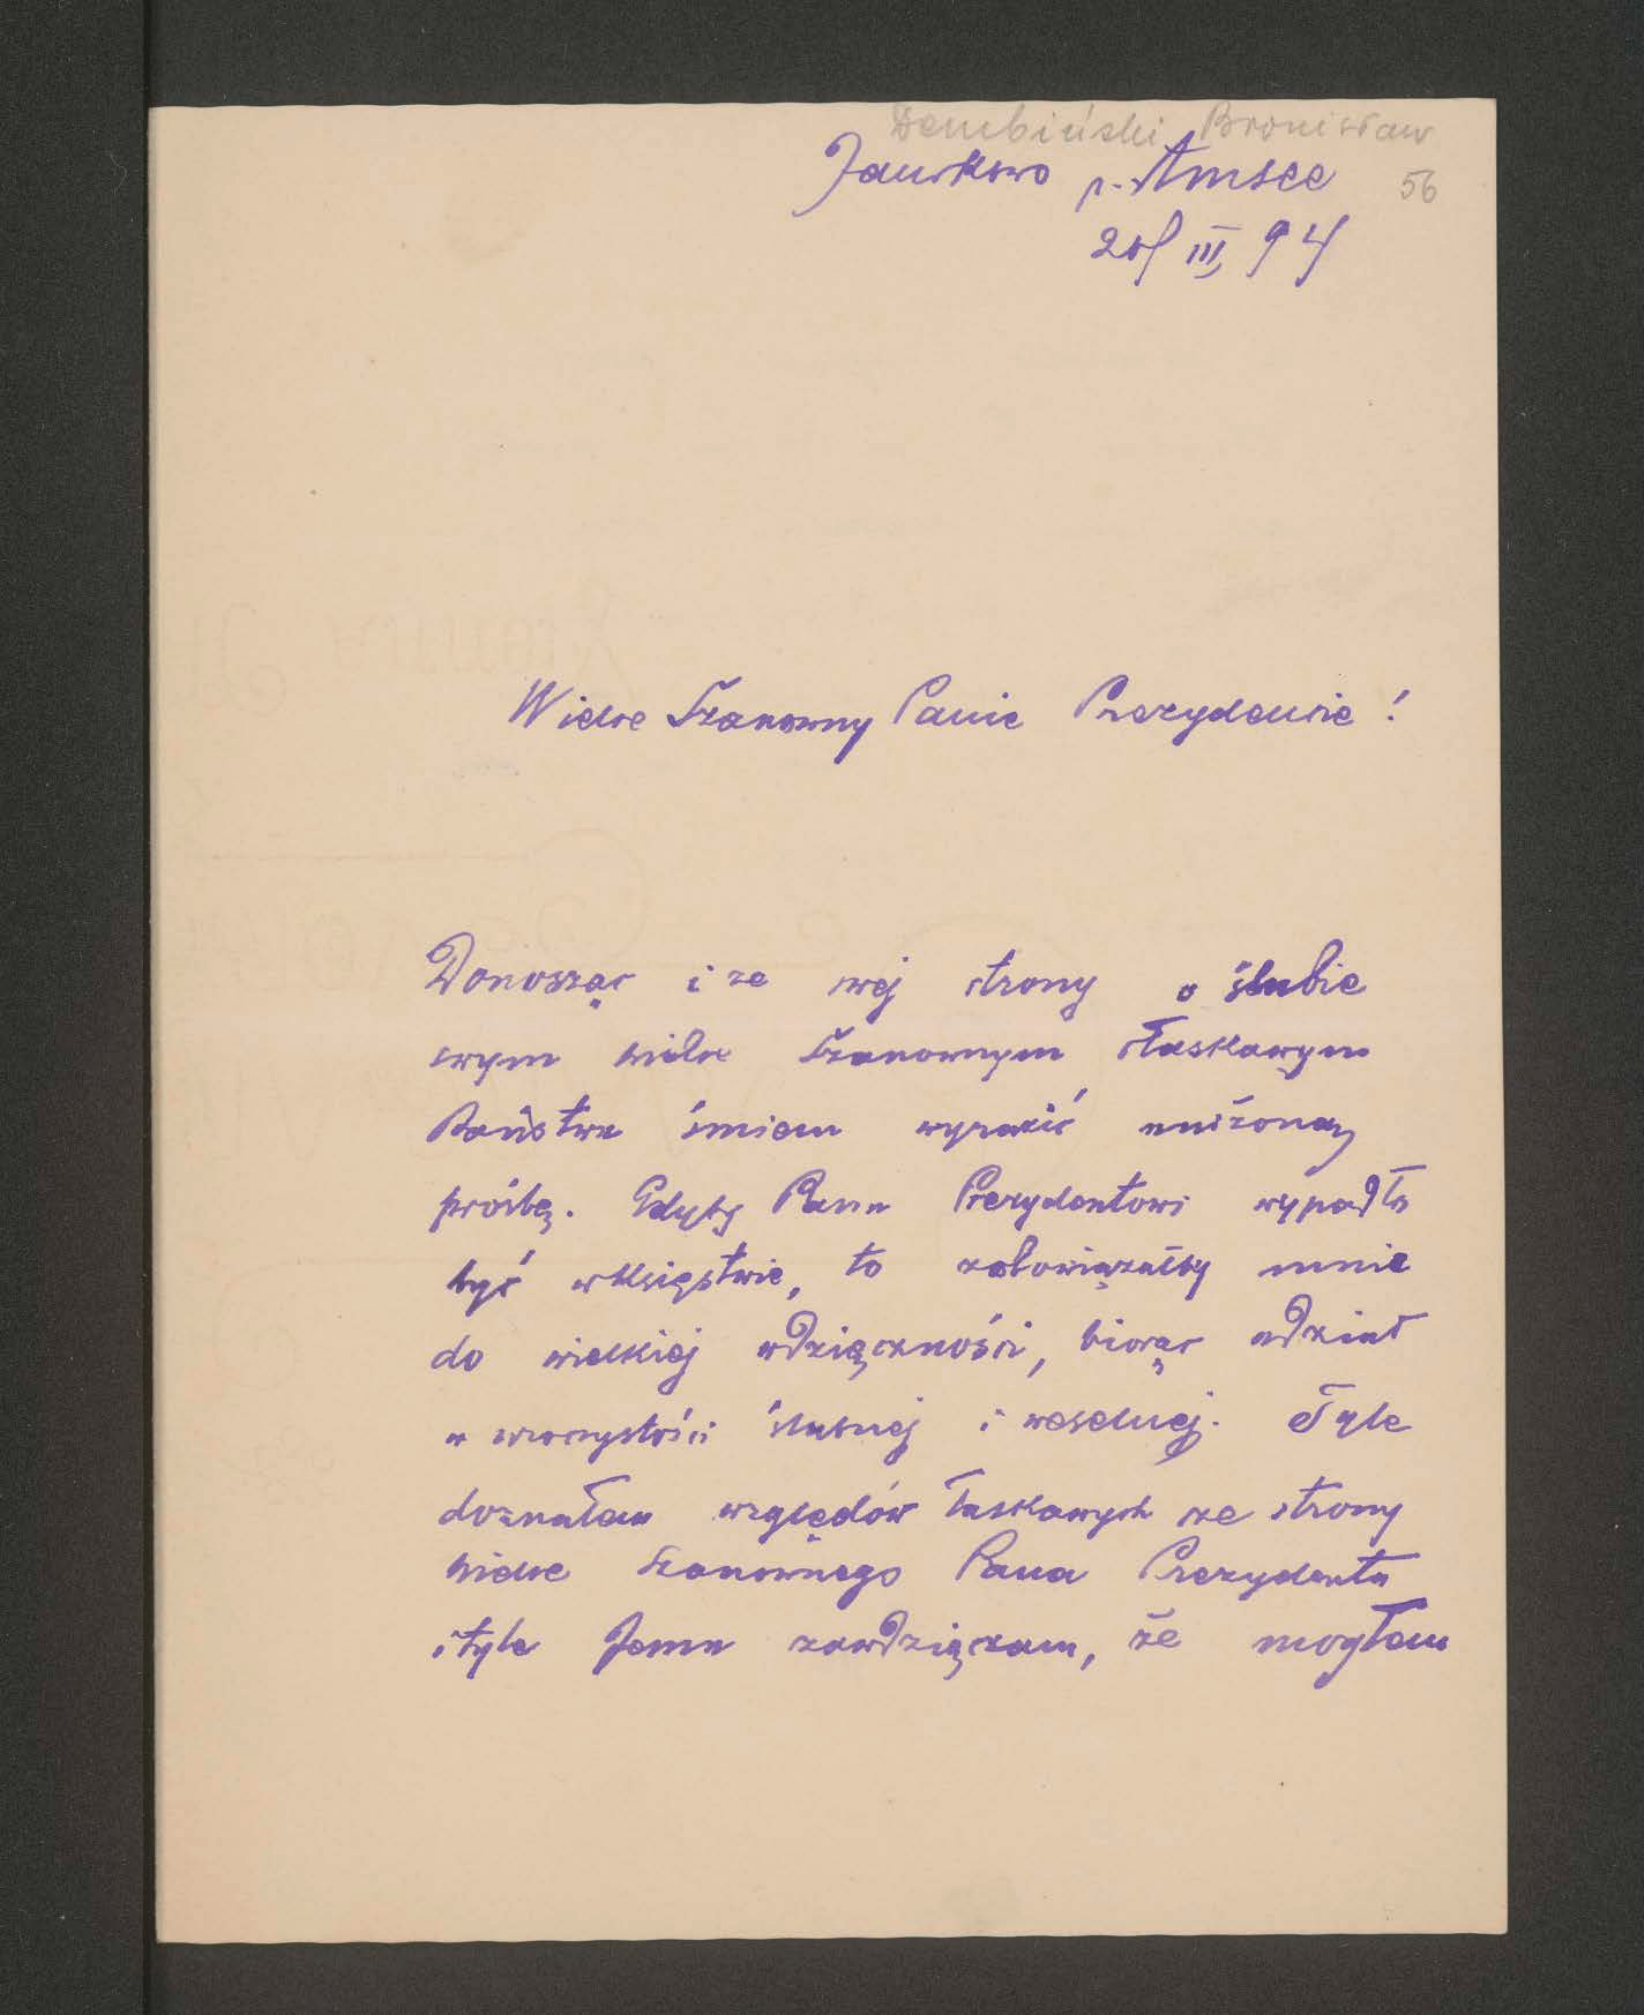 Dembiński Bronisław
Janikowo p. Amsee 56
III 94
Wielce Szanowny Panie Prezydencie!
Donosząc i ze swej strony o ślubie
swym wielce Szanownym łaskawym
Państwu śmiem wyrazić uniżoną
prośbę. Gdyby Panu Prezydentowi wypadło
być w Księstwie, to zobowiązałby mnie
do wielkiej wdzięczności, biorąc udział
w uroczystości ślubnej i weselnej. Tyle
doznałem względów łaskawych ze strony
wielce Szanownego Pana Prezydenta
i tyle Jemu zawdzięczam, że mogłem